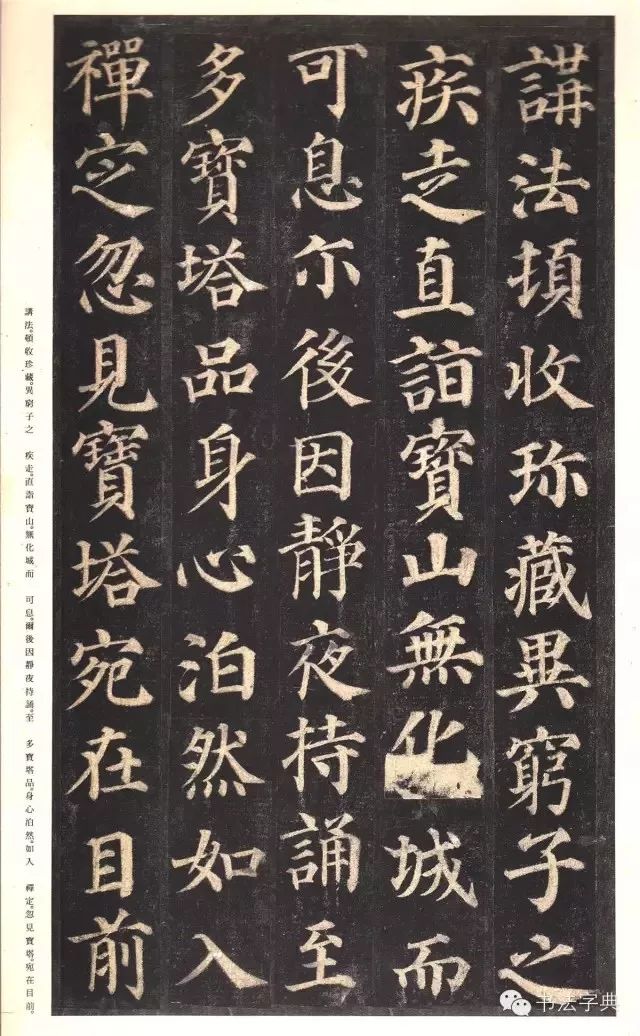 講法頓收珎藏異窮子之
疾走直詣寶山無化城而
可息尒後因靜夜持誦至
多寶塔品身心泊然如入
禪定忽見寶塔宛在目前
講法。頓收珍藏。異窮子之 疾走。直詣寶山。無化城而 可息。爾後因靜夜持誦。至 多寶塔品。身心泊然。如入 禪定。忽見寶塔。宛在目前。
书法字典